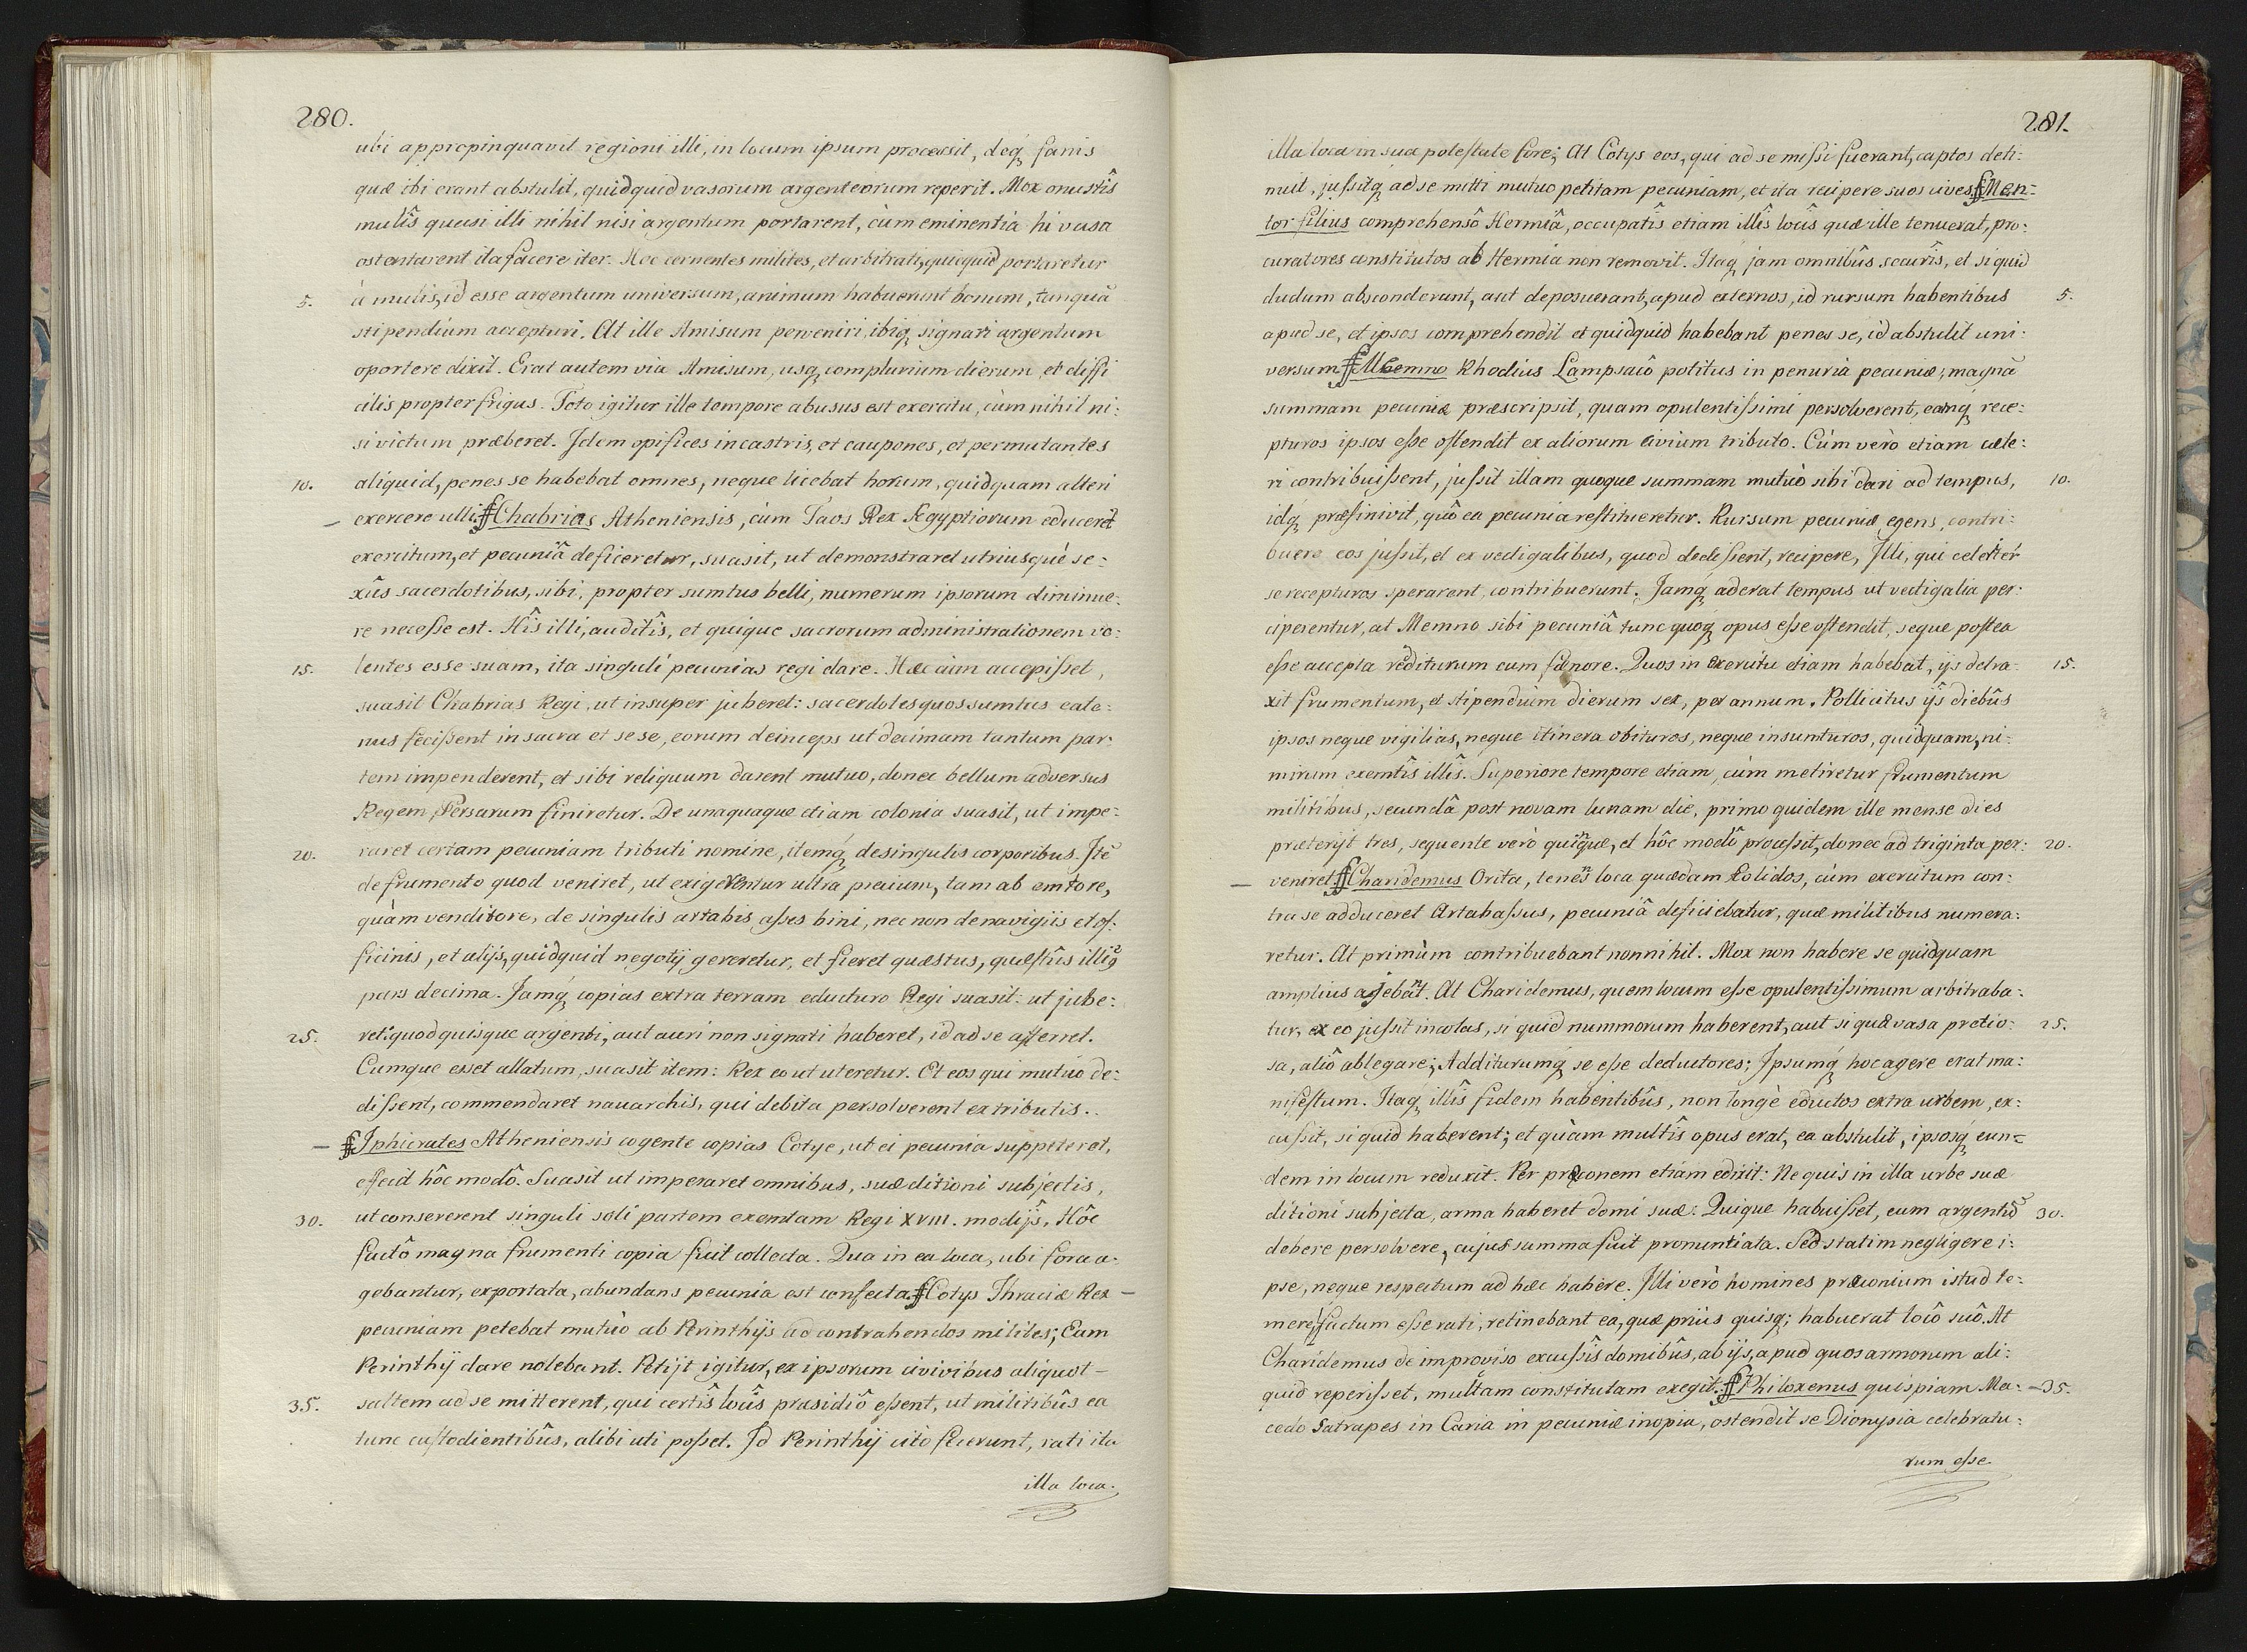 280.
ubi appropinquavit regioni illi, in locum ipsum processit, deq́ fanis
quæ ibi erant abstulit, quidquid vasorum argenteorum reperit. Mox onustîs
mulîs quasi illi nihil nisi argentum portarent, cùm eminentia hi vasa
ostentarent ita facere iter. Hoc cernentes milites, et arbitrati, quicquid portaretur
5. à mulis, id esse argentum universum, animum habuerunt bonum, tanquā
stipendium accepturi. At ille Amisum perveniri, ibiq signari argentum
oportere dixit. Erat autem via Amisum, usq complurium dierum, et diffi
cilis propter frigus. Toto igitur ille tempore abusus est exercitu, cùm nihil ni:
si victum præberet. Idem opifices in castris, et caupones, et permutantes
10. aliquid, penes se habebat omnes, neque licebat horum, quidquam alteri
exercere ulli. Chabrias Atheniensis, cùm Táos Rex Ægyptiorum educeret
exercitum, et pecuniâ deficeretur, suasit, ut demonstraret utriusquè se:
xûs sacerdotibus, sibi, propter sumtus belli, numerum ipsorum diminue:
re necesse est. Hîs illi, auditîs, et quique sacrorum administrationem vo:
15. lentes esse suam, ita singuli pecunias regi dare. Hæc cùm accepisset,
suasit Chabrias Regi, ut insuper juberet: sacerdotes quos sumtus eate:
nus fecissent in sacra et sese, eorum deinceps ut decimam tantum par:
tem impenderent, et sibi reliquum darent mutuo, donec bellum adversus
Regem Persarum finiretur. De unaquaque etiam colonia suasit, ut impe:
20. raret certam pecuniam tributi nomine, itemq́ de singulis corporibus. Itē
de frumento quod veniret, ut exigerentur ultra precium, tam ab emtore,
quàm venditore, de singulis artabis asses bini, nec non de navigiis et of:
ficinis, et alijs, quidquid negotij gereretur, et fieret quæstus, quæstûs illiꝰ
pars decima. Jamq́ copias extra terram educturo Regi suasit: ut jube:
25. ret: quod quisque argenti, aut auri non signati haberet, id ad se afferret.
Cumque esset allatum, suasit item: Rex eo ut uteretur. Et eos qui mutuò de:
dissent, commendaret nauarchis, qui debita persolverent ex tributis.
Iphicrates Atheniensis cogente copias Cotye, ut ei pecunia suppeteret,
effecit hôc modô. Suasit ut imperaret omnibus, suæ ditioni subjectis,
30. ut consererent singuli soli partem exemtam Regi XVIII. modijs. Hôc
factô magna frumenti copia fuit collecta. Qua in ea loca, ubi fora a:
gebantur, exportata, abundans pecunia est confecta. Cotys Thraciæ Rex
pecuniam petebat mutuò ab Perinthijs ad contrahendos milites; Eam
Perinthij dare nolebant. Petijt igitur, ex ipsorum civivibus aliquot
35. saltem ad se mitterent, qui certîs locîs præsidiô essent, ut militibûs ea
tunc custodientibûs, alibi uti posset. Id Perinthij citò fecerunt, rati ita
illa loca.
281.
illa loca in sua potestate fore; At Cotys eos, qui ad se missi fuerant, captos deti:
nuit, jussitq ad se mitti mutuo petitam pecuniam, et ita recipere suos cives. Men:
tor filius comprehensô Hermiâ, occupatîs etiam illîs locis quæ ille tenuerat, pro:
curatores constitutos ab Hermiâ non removit. Itaq jam omnibûs securîs, et si quid
5. dudum absconderant, aut deposuerant, apud externos, id rursum habentibus
apud se, et ipsos comprehendit et quidquid habebant penes se, id abstulit uni:
versum. Memno Rhodius Lampsacô potitus in penuriâ pecuniæ; magnā
summam pecuniæ præscripsit, quam opulentissimi persolverent, eamq rece:
pturos ipsos esse ostendit ex aliorum civium tributo. Cùm verò etiam cæte:
10. ri contribuissent, jussit illam quoque summam mutuò sibi dari ad tempus,
idq præfinivit, quô ea pecunia restitueretur. Rursum pecuniæ egens, contri:
buere eos jussit, et ex vectigalibus, quod dedissent, recipere, Illi, qui celeriter
se recepturos sperarent, contribuerunt. Jamq́ aderat tempus ut vectigalia per:
ciperentur, at Memno sibi pecuniâ tunc quoq́ opus esse ostendit, seque postea
15. esse accepta redditurum cum fænore. Quos in exercitu etiam habebat, ijs detra:
xit frumentum, et stipendium dierum sex, per annum. Pollicitus ijs diebûs
ipsos neque vigilias, neque itinera obituros, neque insumturos, quidquam, ni:
mirum exemtîs illîs. Superiore tempore etiam, cùm metiretur frumentum
militibus, secundâ post novam lunam die, primo quidem ille mense dies
20. præterijt tres, sequente verò quinque, et hôc modô processit, donec ad triginta per:
veniret. Charidemus Orita, tenens loca quædam Eolidos, cùm exercitum con:
tra se adduceret Artabassus, pecuniâ deficiebatur, quæ militibus numera:
retur. At primùm contribuebant nonnihil. Mox non habere se quidquam
amplius ajebant. At Charidemus, quem locum esse opulentissimum arbitraba:
25. tur, ex eo jussit incolas, si quid nummorum haberent, aut si qua vasa pretio:
sa, aliô ablegare; Additurumq́ se esse deductores; Ipsumq́ hoc agere erat ma:
nifestum. Itaq illîs fidem habentibûs, non longè eductos extra urbem, ex:
cussit, si quid haberent; et quàm multîs opus erat, ea abstulit, ipsosq́ eun:
dem in locum reduxit. Per præconem etiam edixit: Ne quis in illa urbe suæ
30. ditioni subjecta, arma haberet domi suæ: Quique habuisset, eum argentū
debere persolvere, cujus summa fuit pronuntiata. Sed statim negligere i:
pse, neque respectum ad hæc habere. Illi verò homines præconium istud te:
mere factum esse rati, retinebant ea, quæ priùs quisq; habuerat locô suô. At
Charidemus de improviso excussîs domibûs, ab ijs, apud quos armorum ali:
35. quid reperisset, multam constitutam exegit. Philoxenus quispiam Ma:
cedo Satrapes in Caria in pecuniæ inopia, ostendit se Dionysia celebratu:
rum esse.